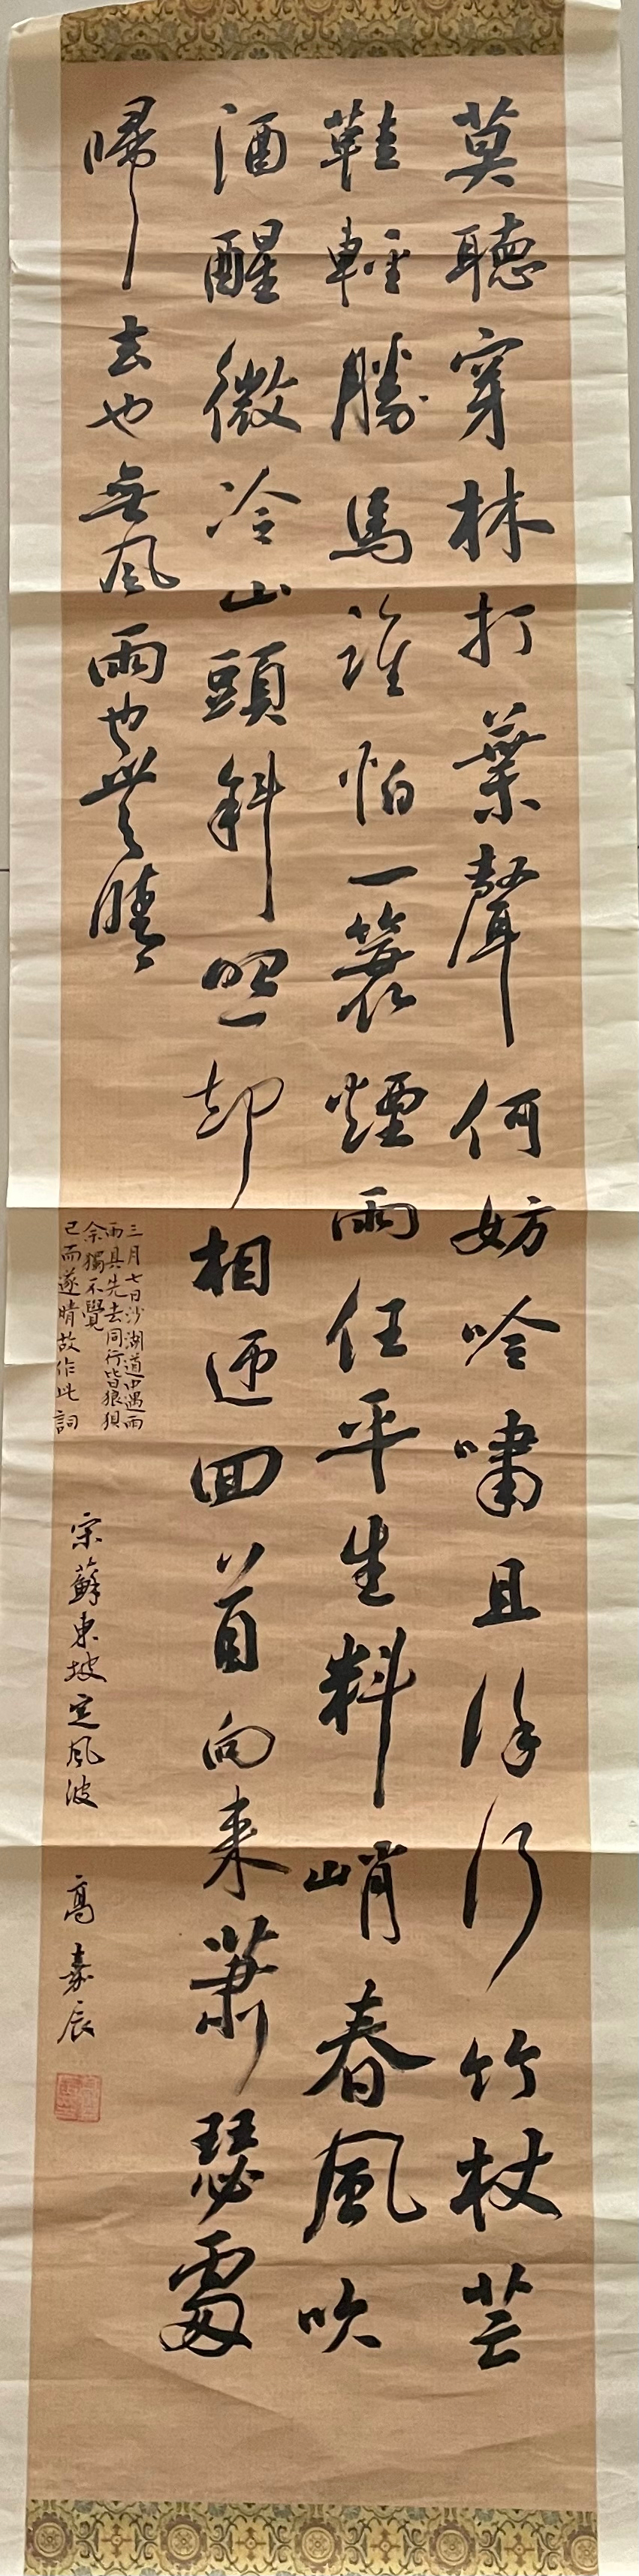 莫聽穿林打葉聲何妨吟嘯且徐行竹杖芒
鞋輕勝馬誰怕一蓑煙雨任平生料峭春風吹
酒醒微冷山頭斜照却相迎回首向来蕭瑟處
歸去也無風雨也無晴
三月七日沙湖道中遇雨
雨具先去同行皆狼狽
余獨不覺
已而遂晴故作此詞
宋蘇東坡定風波
高嘉辰